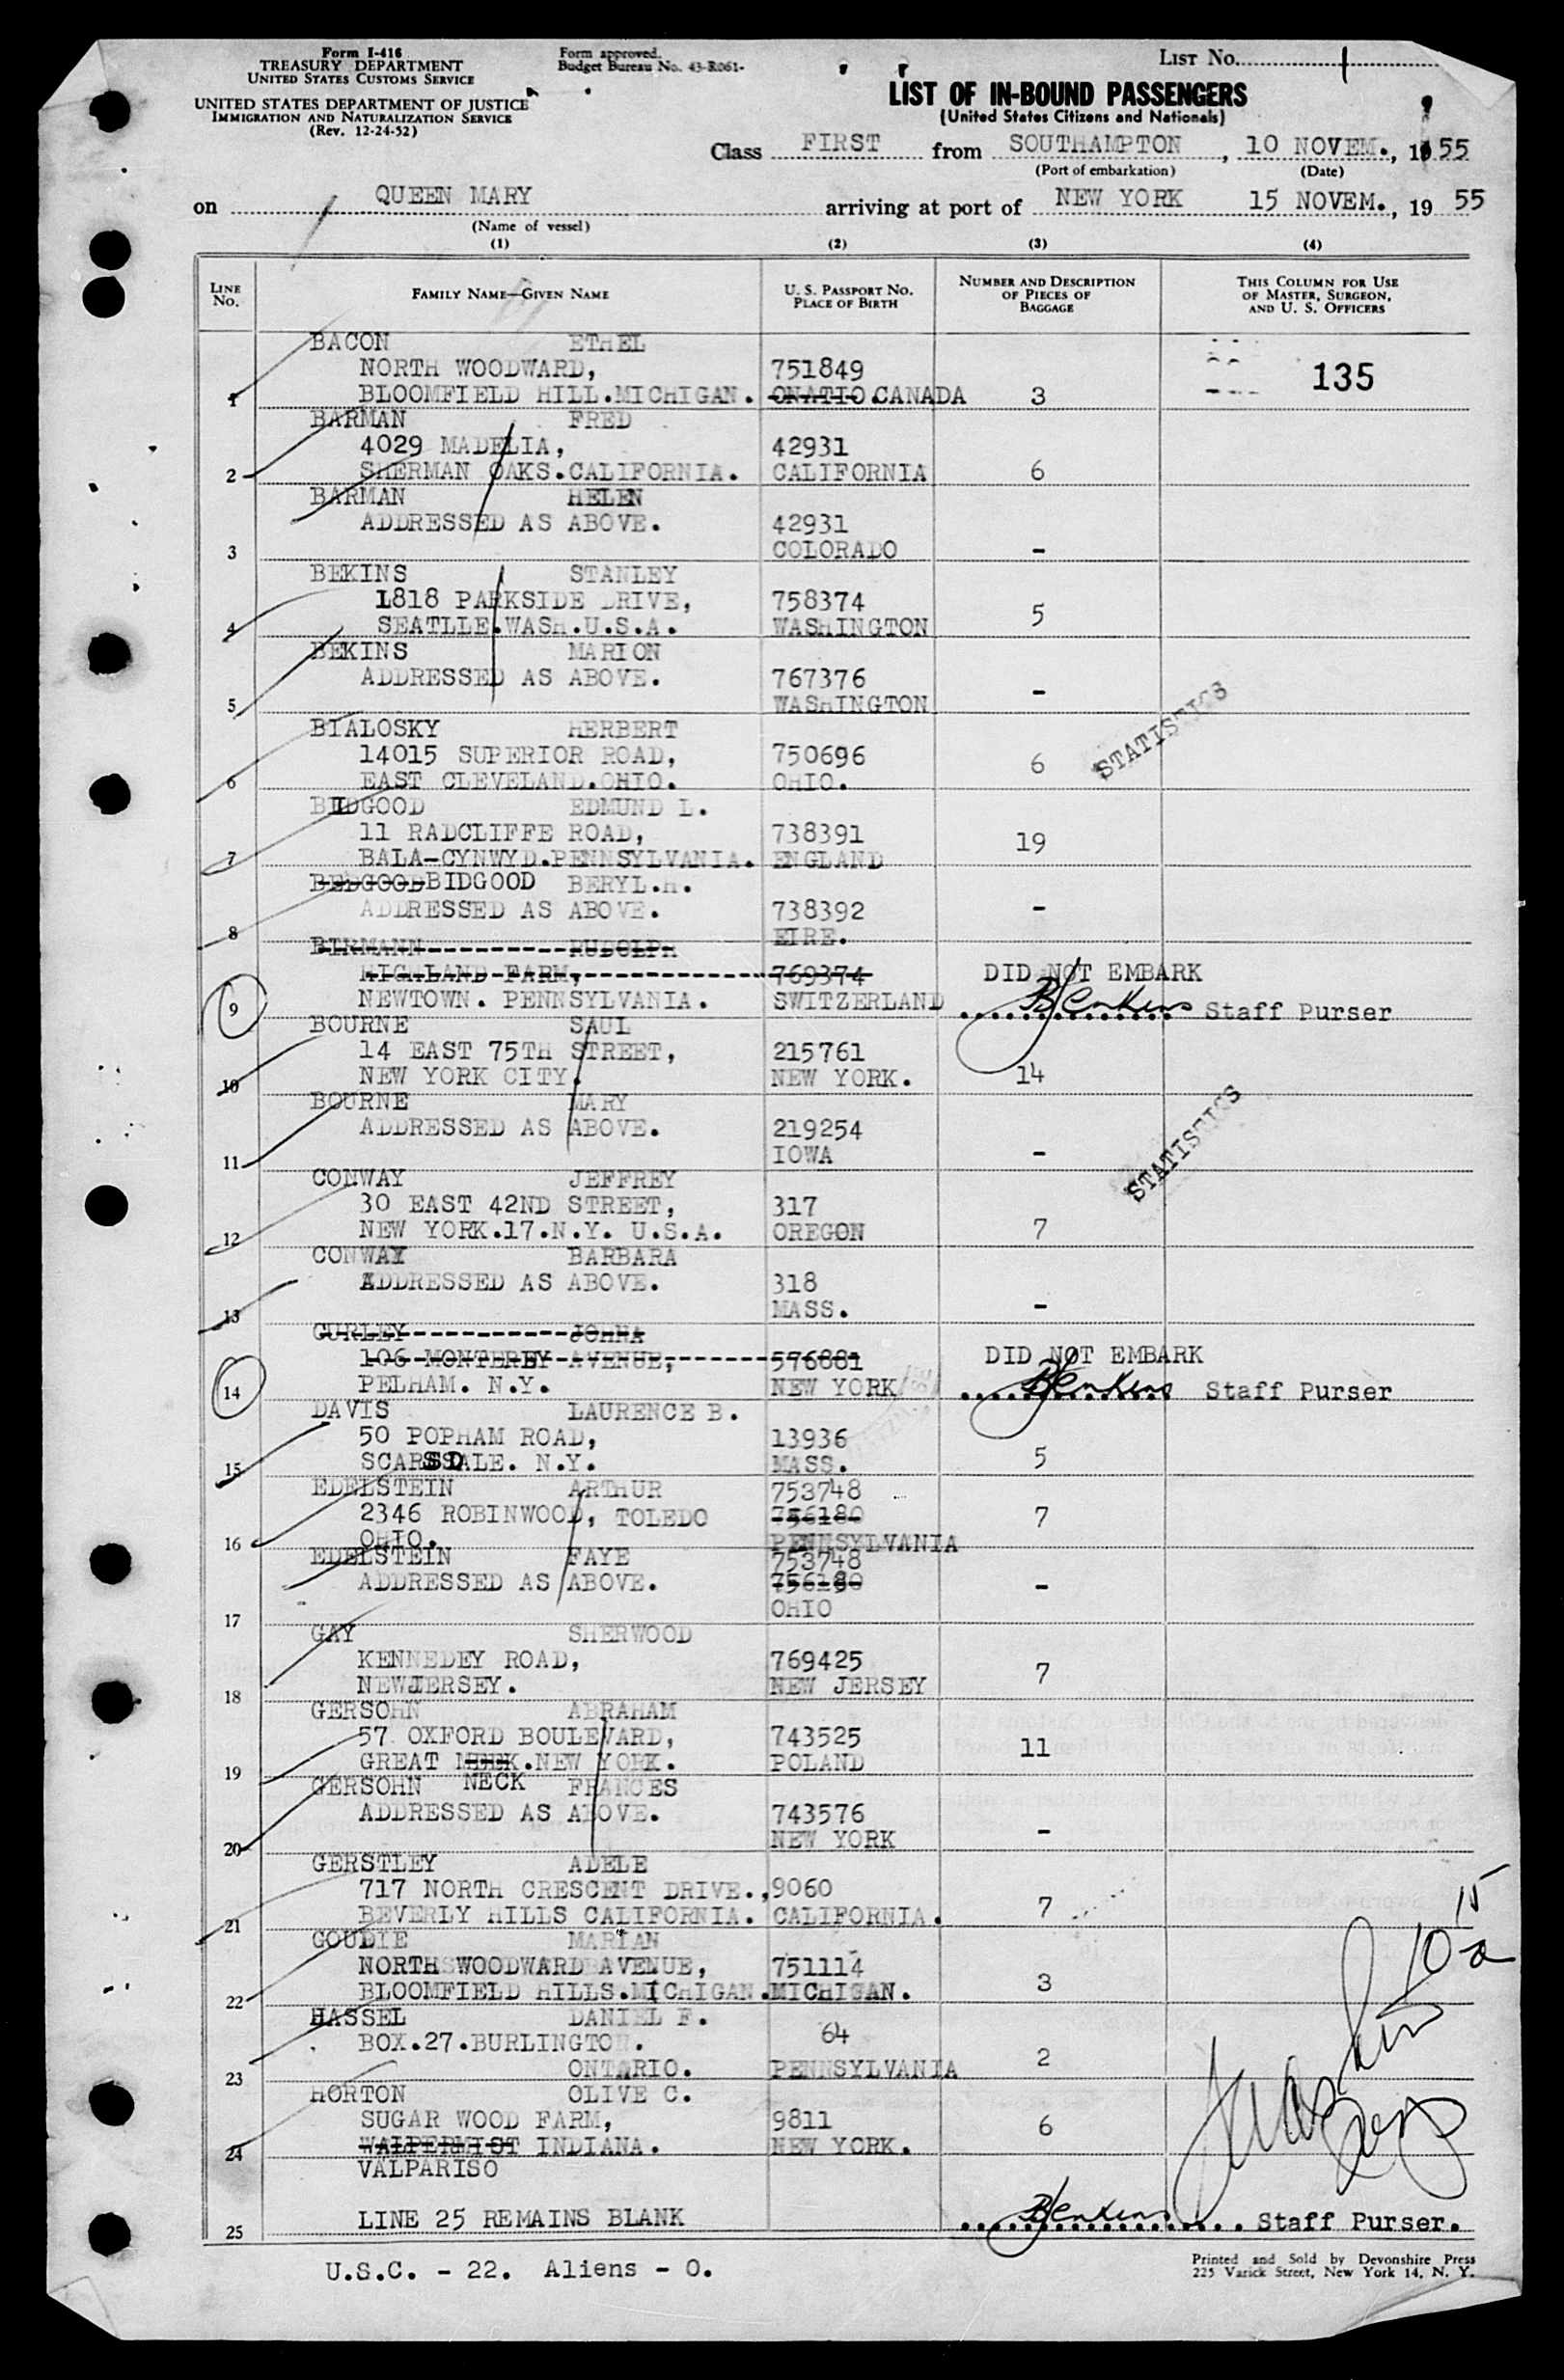 Form I-416
TREASURY DEPARTMENT
UNITED STATES CUSTOMS SERVICE
UNITED STATES DEPARTMENT OF JUSTICE
IMMIGRATION AND NATURALIZATION SERVICE
(Rev. 12-24-52)
Form approved.
Budget Bureau No. 43-R061-
LIST No. 1
LIST OF IN-BOUND PASSENGERS
(United States Citizens and Nationals)
Class FIRST from SOUTHAMPTON, 10 NOVEM., 1955
(Port of embarkation) (Date)
on QUEEN MARY arriving at port of NEW YORK 15 NOVEM., 19 55
(Name of vessel)
(1) (2) (3) (4)
LINE NO. FAMILY NAME—GIVEN NAME U. S. PASSPORT NO. PLACE OF BIRTH NUMBER AND DESCRIPTION OF PIECES OF BAGGAGE THIS COLUMN FOR USE OF MASTER, SURGEON, AND U. S. OFFICERS
BACON ETHEL
NORTH WOODWARD, 751849 135
1 BLOOMFIELD HILL.MICHIGAN. ONATIO.CANADA 3
BARMAN FRED
4029 MADELIA, 42931
2 SHERMAN OAKS.CALIFORNIA. CALIFORNIA 6
BARMAN HELEN
ADDRESSED AS ABOVE. 42931
3 COLORADO -
BEKINS STANLEY
1818 PARKSIDE DRIVE, 758374 5
4 SEATLLE.WASH.U.S.A. WASHINGTON
BEKINS MARION
ADDRESSED AS ABOVE. 767376 -
5 WASHINGTON
STATISTICS
BIALOSKY HERBERT
14015 SUPERIOR ROAD, 750696 6
6 EAST CLEVELAND.OHIO. OHIO.
BIDGOOD EDMUND L.
11 RADCLIFFE ROAD, 738391 19
7 BALA-CYNWYD.PENNSYLVANIA. ENGLAND
BEDGOOD BIDGOOD BERYL.H.
ADDRESSED AS ABOVE. 738392 -
8 EIRE.
BIRMANN RUDOLPH
HIGHLAND FARM, 769374 DID NOT EMBARK
9 NEWTOWN. PENNSYLVANIA. SWITZERLAND Staff Purser
BOURNE SAUL
14 EAST 75TH STREET, 215761
10 NEW YORK CITY. NEW YORK. 14
BOURNE MARY
ADDRESSED AS ABOVE. 219254
11 IOWA -
STATISTICS
CONWAY JEFFREY
30 EAST 42ND STREET, 317
12 NEW YORK.17.N.Y. U.S.A. OREGON 7
CONWAY BARBARA
ADDRESSED AS ABOVE. 318
13 MASS. -
CURLEY JOHNA
106 MONTEREY AVENUE, 576881 DID NOT EMBARK
14 PELHAM. N.Y. NEW YORK Staff Purser
DAVIS LAURENCE B.
50 POPHAM ROAD, 13936
15 SCARSDALE. N.Y. MASS. 5
EDELSTEIN ARTHUR 753748
2346 ROBINWOOD, TOLEDO 756180 7
16 OHIO. PENNSYLVANIA
EDELSTEIN FAYE 753748
ADDRESSED AS ABOVE. 756180 -
17 OHIO
GAY SHERWOOD
KENNEDEY ROAD, 769425 7
18 NEWJERSEY. NEW JERSEY
GERSOHN ABRAHAM
57 OXFORD BOULEVARD, 743525 11
19 GREAT .NEW YORK. POLAND
GERSOHN NECK FRANCES
ADDRESSED AS ABOVE. 743576
20 NEW YORK -
GERSTLEY ADELE
717 NORTH CRESCENT DRIVE., 9060 7
21 BEVERLY HILLS CALIFORNIA. CALIFORNIA.
GOUDIE MARIAN
NORTH WOODWARD AVENUE, 751114
22 BLOOMFIELD HILLS.MICHIGAN. MICHIGAN. 3
HASSEL DANIEL F.
BOX.27.BURLINGTON. 64
23 ONTARIO. PENNSYLVANIA 2
HORTON OLIVE C.
SUGAR WOOD FARM, 9811 6
24 INDIANA. NEW YORK.
VALPARISO
25 LINE 25 REMAINS BLANK Staff Purser.
U.S.C. - 22. Aliens - 0.
Printed and Sold by Devonshire Press
225 Varick Street, New York 14, N. Y.